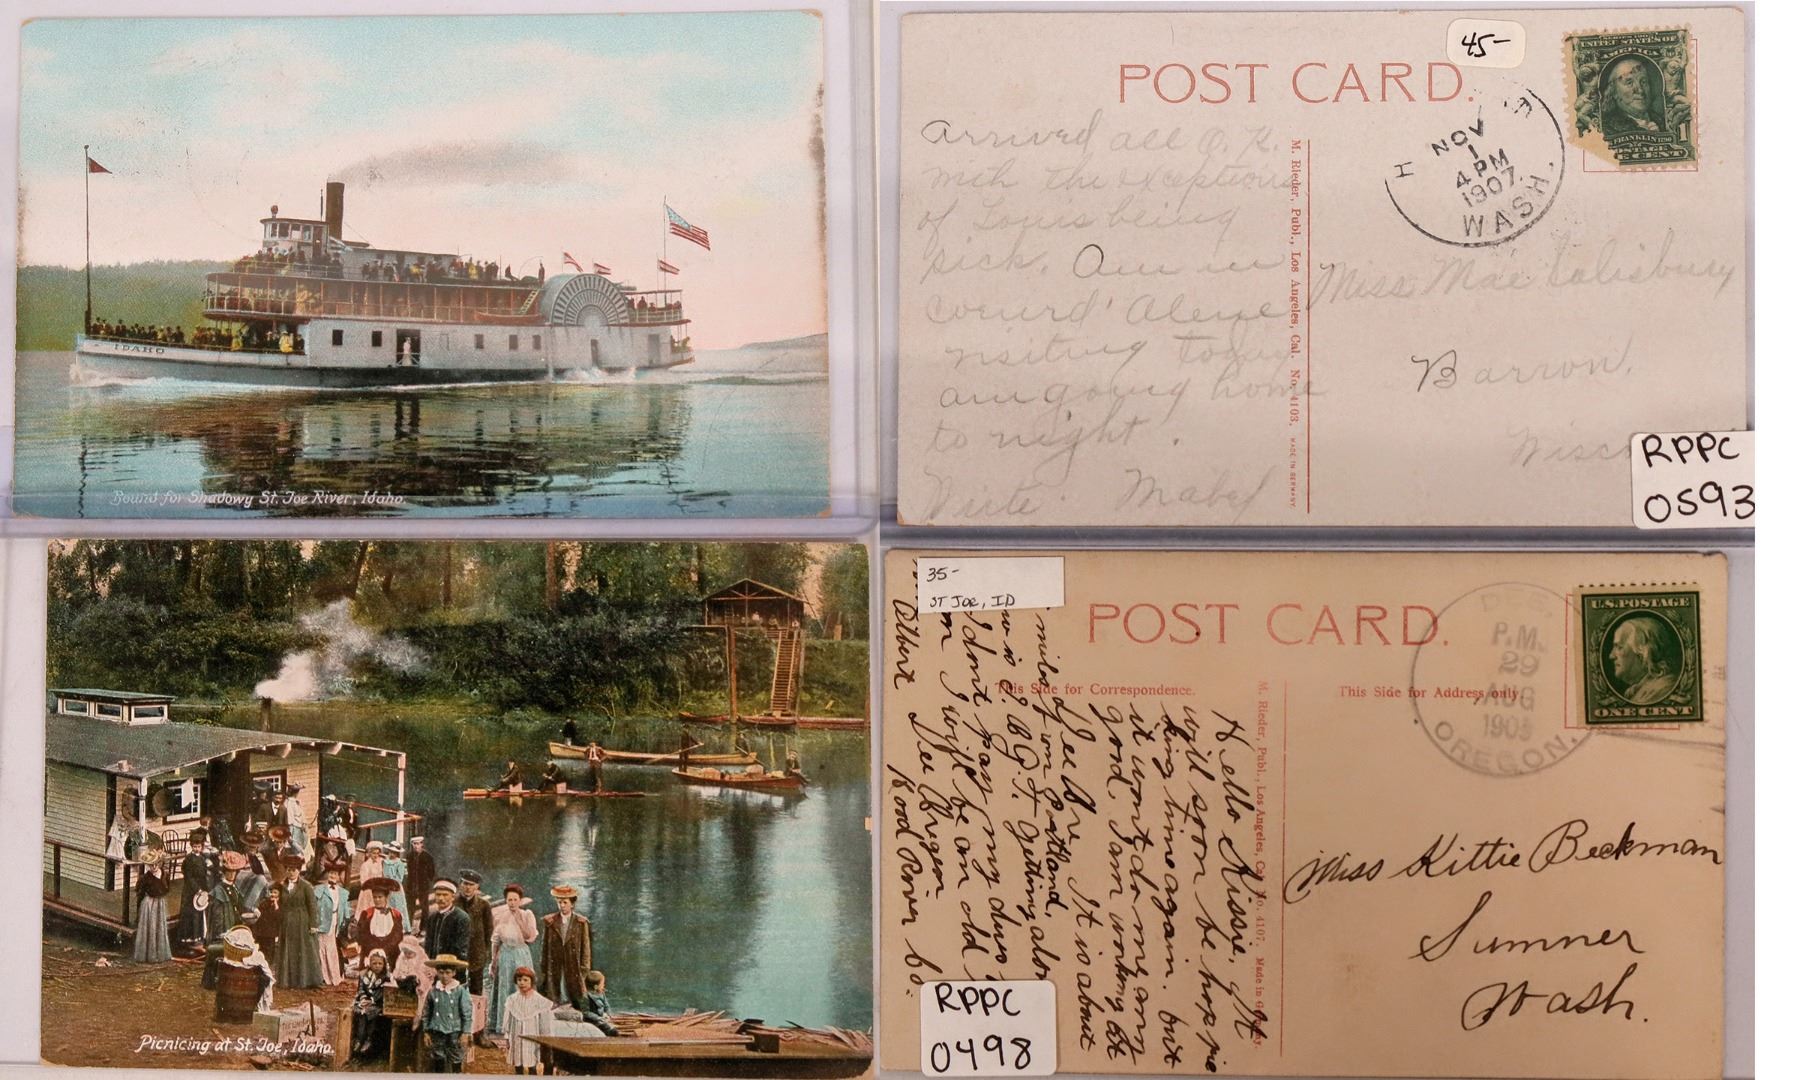 IDAHO
Bound for Shadowy St. Joe River, Idaho.
45-
POST CARD.
UNITED STATES OF
AMERICA
FRANKLIN
POSTAGE
1
NOV
1
4 PM
1907.
WASH.
H
Arrived all O. K.
with the exceptions
of Louis being
sick. Am in
Coeurd' Alene
visiting today
am going home
to night.
Write. Mabel
M. Rieder, Publ., Los Angeles, Cal. No. 4103. MADE IN GERMANY
Miss Mae Salisbury
Barron,
Wisc
RPPC
0593
Picnicing at St. Joe, Idaho.
35-
ST JOE, ID
POST CARD.
This Side for Correspondence.
This Side for Address only.
U.S. POSTAGE
ONE CENT
P.M.
29
AUG
OREGON.
Hello Kissie,
will soon be hop pie
king time again. but
it wont do me any
good. I am working at
Leebre. It is about
miles from Portland.
getting along
I dont pass my dues
I will be an old
Albert Lee Obrigen
Hood River
M. Rieder, Publ., Los Angeles, Cal. No. 4107. Made in Germany.
Miss Kittie Beckman
Sumner
Wash.
RPPC
0498